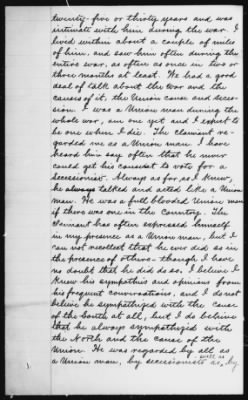 twenty-five or thirty years and was
intimate with him during the war. I
lived within about a couple of miles
of him, and saw him often during the
entire war, as often as once in two or
three months at least. We had a good
deal of talk about the war and the
causes of it, the Union cause and seces-
sion. I was a Union man during the
whole war, am one yet and I expect to
be one when I die. The claimant re-
garded me as a Union man. I have
heard him say often that he never
could get his consent to vote for a
secessionist. Always as far as I knew,
he always talked and acted like a Union
man. He was a full blooded Union man
if there was one in the country. The
claimant has often expressed himself
in my presence as a Union man, but I
can not recollect that he ever did so in
the presence of others – though I have
no doubt that he did do so. I believe I
knew his sympathies and opinions from
his frequent conversations, and I do not
believe he sympathized with the cause
of the South at all, but I do believe
that he always sympathized with
the North and the cause of the
Union. He was regarded by all as
a Union man, by secessionists as well as by